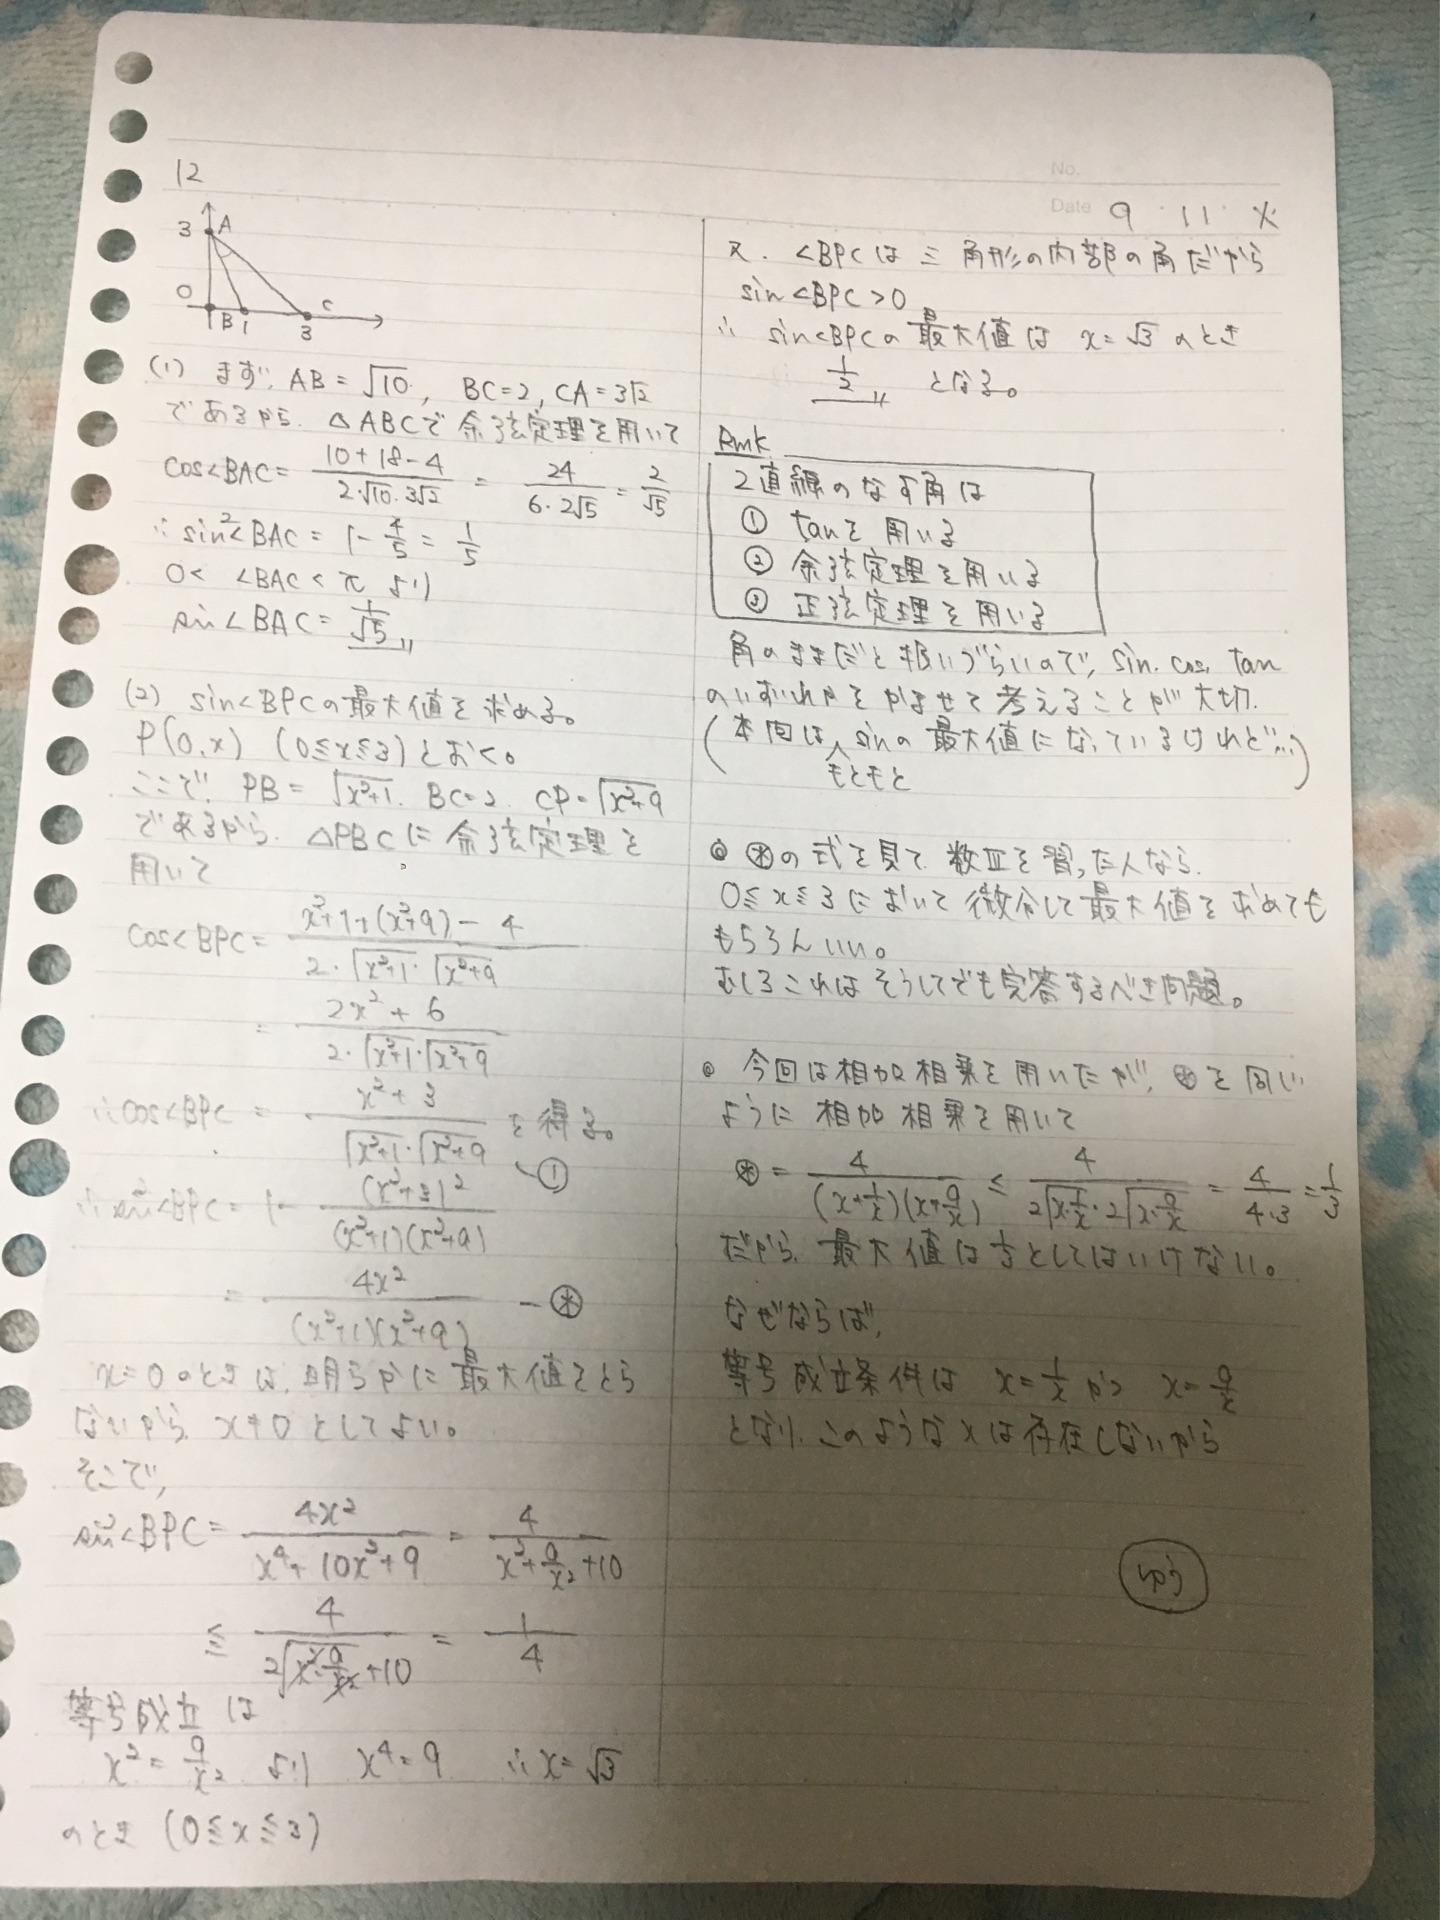 12
No.
Date 9 ・ 11 ・ 火
3 A
O B 1 3 C
(1) まず、AB = √10, BC=2, CA=3√2
であるから、△ABCで余弦定理を用いて
cos∠BAC = (10+18-4)/(2·√10·3√2) = 24/(6·2√5) = 2/√5
∴ sin²∠BAC = 1 - 4/5 = 1/5
0 < ∠BAC < π より
sin∠BAC = 1/√5 〃
(2) sin∠BPCの最大値を求める。
P(0,x) (0≦x≦3) とおく。
ここで、PB = √(x²+1). BC=2. CP=√(x²+9)
であるから、△PBCに余弦定理を
用いて
cos∠BPC = (x²+1+(x²+9)-4)/(2·√(x²+1)·√(x²+9))
= (2x²+6)/(2·√(x²+1)·√(x²+9))
∴ cos∠BPC = (x²+3)/(√(x²+1)·√(x²+9)) を得る。 -①
∴ sin²∠BPC = 1 - (x²+3)²/((x²+1)(x²+9))
= 4x²/((x²+1)(x²+9)) -⊛
x=0のときは、明らかに最大値をとら
ないから、x≠0としてよい。
そこで、
sin²∠BPC = 4x²/(x⁴+10x²+9) = 4/(x²+9/x²+10)
≦ 4/(2√(x²·9/x²)+10) = 1/4
等号成立は
x² = 9/x² より x⁴=9 ∴x=√3
のとき (0≦x≦3)
又、∠BPCは三角形の内部の角だから
sin∠BPC>0
∴ sin∠BPCの最大値は x=√3 のとき
1/2 〃 となる。
Rmk
2直線のなす角は
① tanを用いる
② 余弦定理を用いる
③ 正弦定理を用いる
角のままだと扱いづらいので、sin. cos. tan
のいずれかをかませて考えることが大切.
(本問はもともとsinの最大値になっているけれど…)
◎ ⊛の式を見て、数Ⅲを習った人なら、
0≦x≦3において微分して最大値を求めても
もちろんいい。
むしろこれはそうしてでも完答するべき問題。
◎ 今回は相加相乗を用いたが、⊛を同じ
ように相加相乗を用いて
⊛ = 4/((x+1/x)(x+9/x)) ≦ 4/(2√(x·1/x)·2√(x·9/x)) = 4/(4·3) = 1/3
だから、最大値は1/3としてはいけない。
なぜならば、
等号成立条件は x=1/x かつ x=9/x
となり、このようなxは存在しないから
ゆう